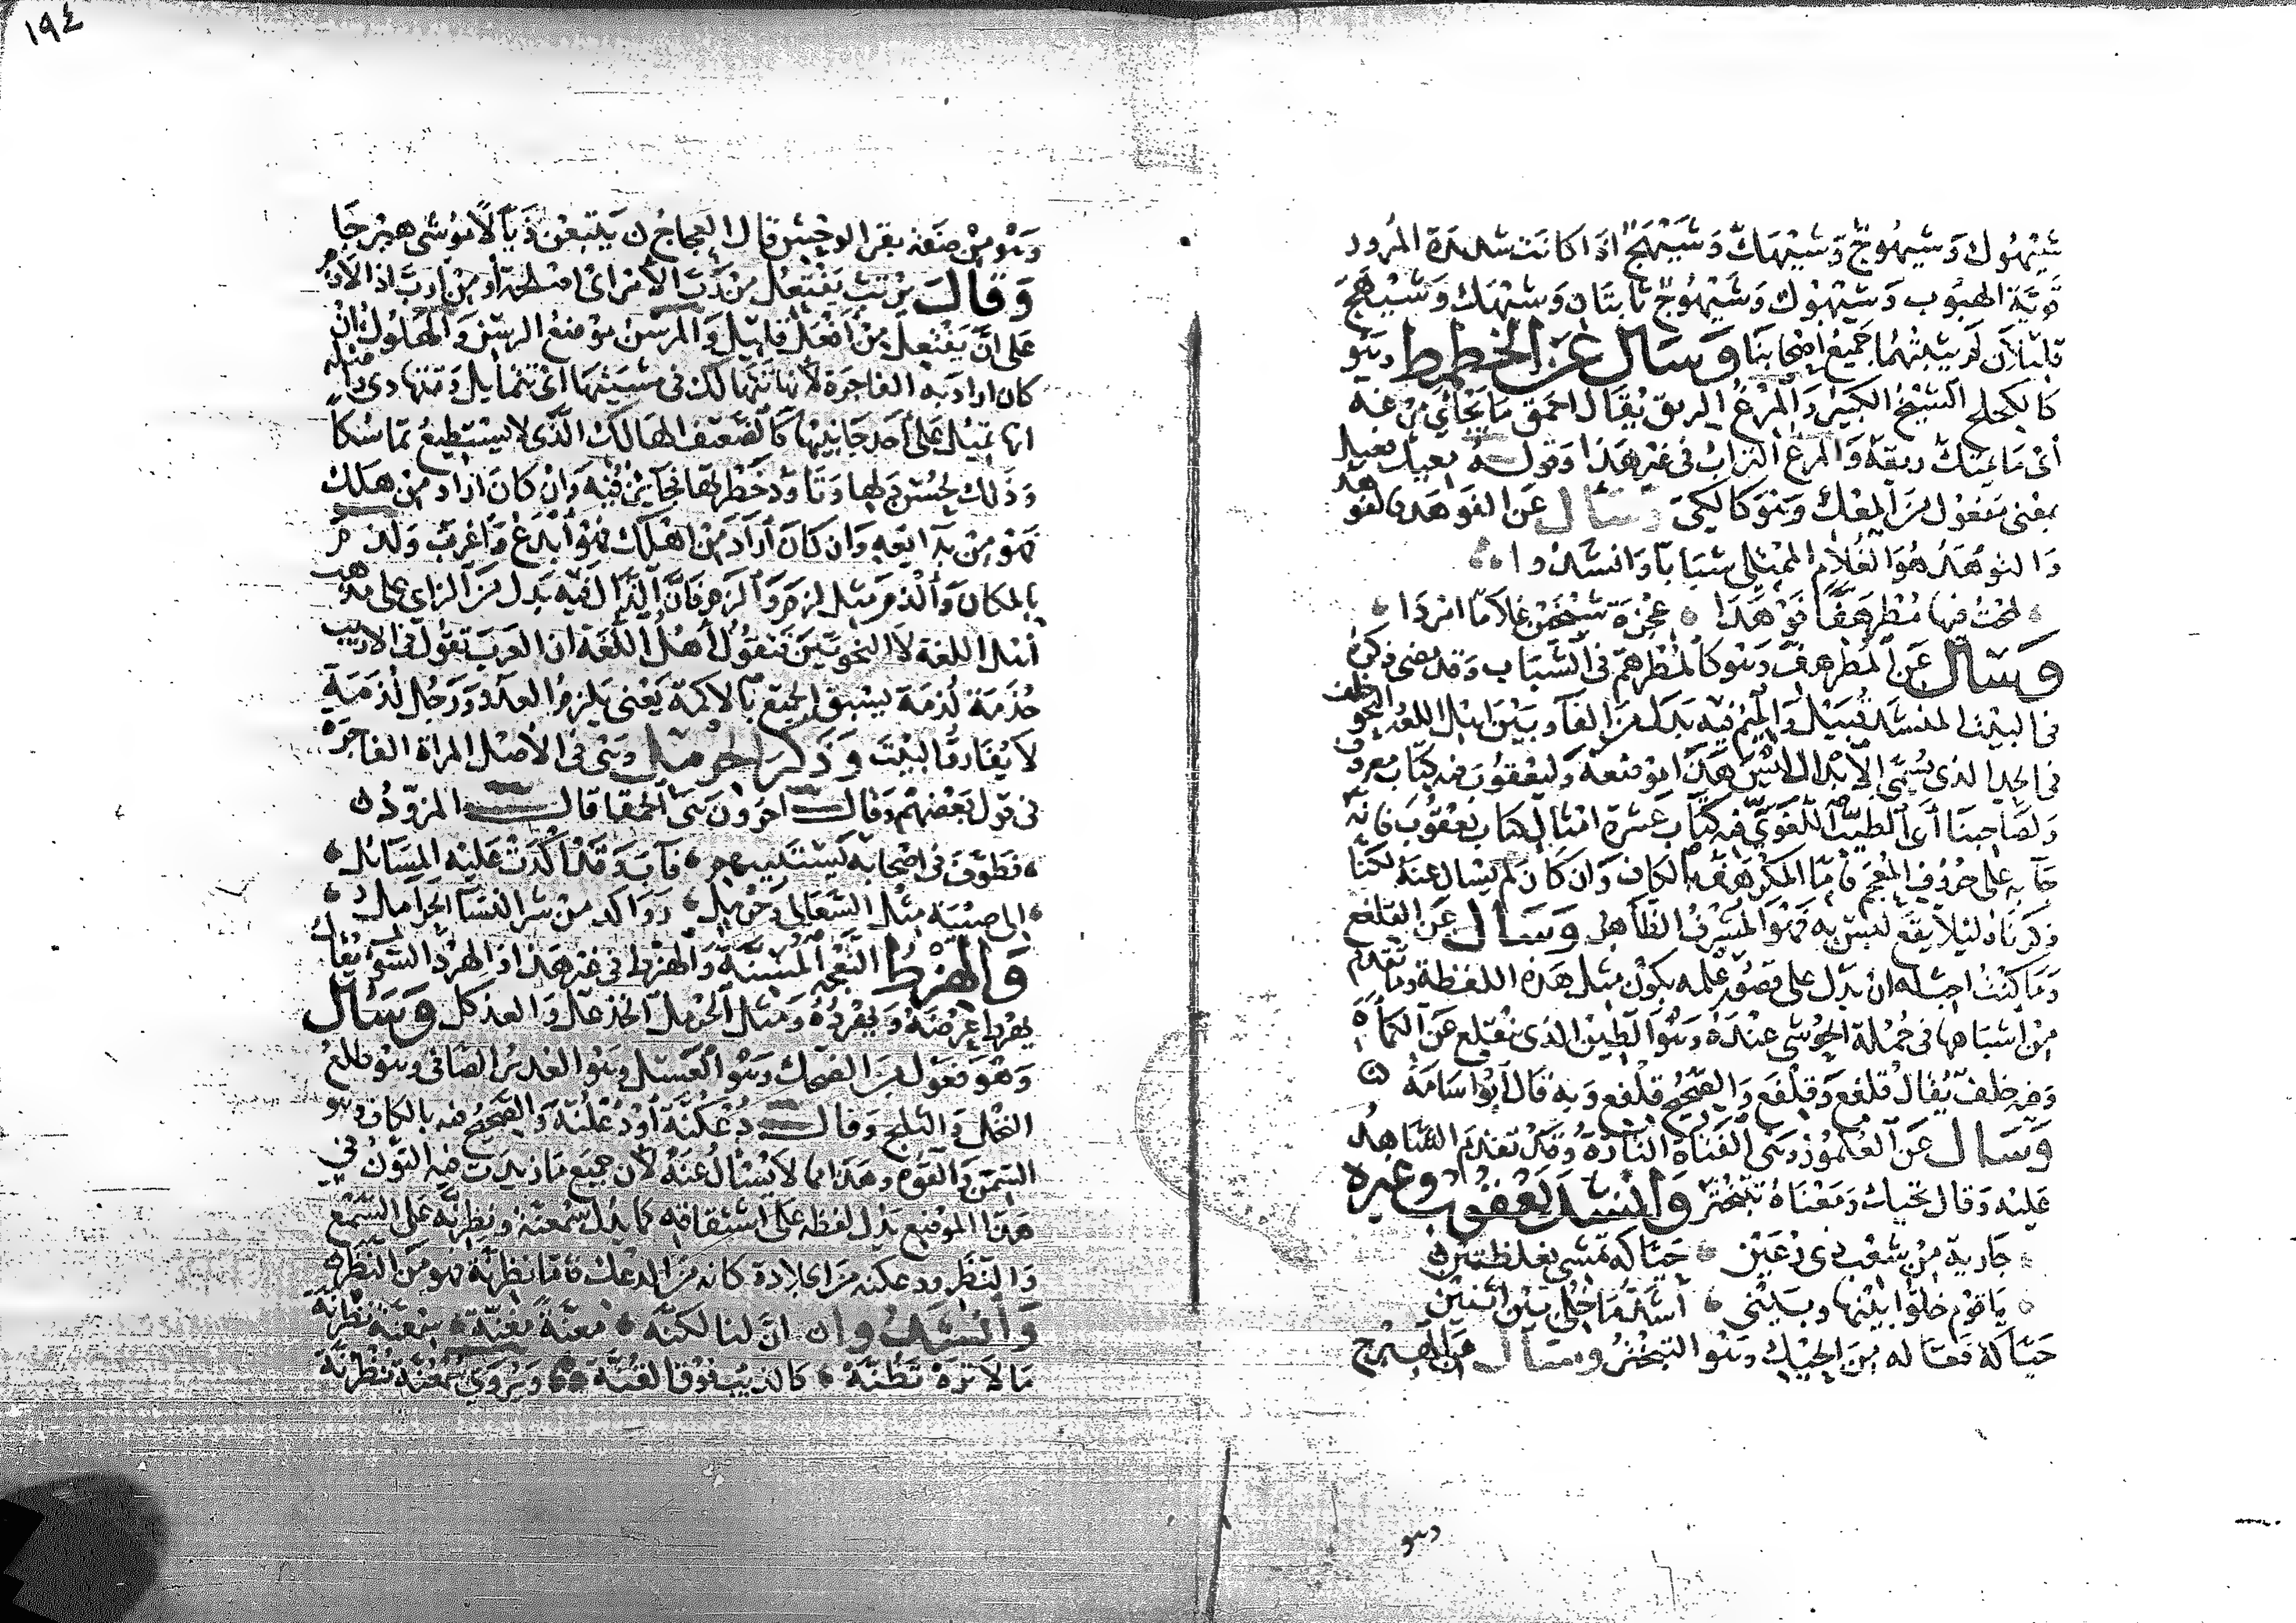 ١٩٤
شَيْهُوك وَشيهُوجٌ وَشيْهَاكٌ وَشَيْهَجٌ اذا كانَت شديدة المُرور
قويّة الهبُوب وَشيْهُوك وَشَيْهُوجٌ ثابتَان وَشيْهَك وَشَيْهَجٌ
قليلان لم يثبتهُما جَميعُ أصْحابنَا وَسَال عَن الخطيط وَهُو
كالكحلح الشيخ الكبير وَالمَرْغُ الريق يُقَال احمَق مَا يَجْأى مَرْغَهُ
أىْ مَا يمسك ريقهُ وَالمرغ التراب في غير هَذا وَقوله
بمعْنى مفعُول مَن المعْك وَهُوَ كالكى وَسَال عَن الفوهد والفو
وَالفوْهَد هُوَ الغُلام الممْتلى شبَابا وَانشدوا
لمحتُ فيها مُطْرهفًّا فَوْهَدَا عِجْزَة شيْخَيْن غلامًا امْرَدَا
وَسَال عَن المطْرهفّ وَهُو كالمُطْرَهمّ في الشّبَاب وَقد مَضى ذكرهُ
في البيْت المنشد قُبَيْل وَالميْم فيه بَدَل مَن الفآ وَبَيْن اهْل اللغَة
في الحد الذي يُسَمّى الابْدال لَيْسَ هَذَا مَوْضعهُ وَليعْقُوبَ فيه كتَاب معروف
وَلصَاحِبنَا أَبي الطيّب اللّغَويّ فيه كتَاب عشرة امْثَال كتاب يعْقُوبَ فانّه
جَآ به عَلى حُرُوف المُعْجَم فَامّا المكْرَهفّ بالكاف وَان كَان لم يسْال عنهُ لكنّا
ذكرْنَاهُ ليلا يقَع لبسٌ به فهُوَ المُشرفُ الظَّاهِر وَسَال عَن القلفع
وَمَا كنْتُ احْسبه ان يَدل على قصُور علمه بكوْن مثْل هَذه اللفظة وَمَا تقدم
مِنْ أشبَاهها في جُملَة الحُوشي عنْدَهُ وَهُوَ الطّين الذي يقتلع عَن الكَمأة
وَفيه خلفٌ يُقَالُ قلفع وَقِلْفَع وَالصحيحُ قلْفع وَبه قَال أبُو اسَامَة
وَسَال عَن العُلْمُوز وَهى الفَتاة التّارّةُ وَقد تقدم الشّاهدُ
عَليْه وَقال تحيك وَمَعْنَاهُ تتبَخْترُ وَانْشد يَعْقُوب وغيره
جَارية مِنْ شعْب ذى رُعَيْن حَيّاكة تمْشى بعُلْطتَيْن
يَا قوْم خلّوا بيْنهَا وبَيْنى أشَدّ مَا خُلى بَيْن اثنَيْن
حَيّاكة فعّاله مِنَ الحَيْك وَهُو التبخْتُرُ وسَأل عَن الهبرج
وهو
وَهُو مِنْ صفَة بقر الوحْش قَال العجاجُ يَتْبعْن ذيّالاً مُوَشّى هبْرجَا
وَقَالَ يرتبّ يفْتعلُ مِنْ رَبّ الأمر اىْ اصْلحَهُ أوْ مِنْ اربّ اذا لازم
عَلى انّ يَفْتعل مِنْ أفعَل قليل وَالمرْسن مَوْضعُ الرسَن وَالهَلوك ان
كان اراد به الفاجرَة لانها تتهالك في مشيَتهَا اىْ تتمايل وَتتهَادى
انها تميل عَلى أحد جَانبيْها كالضّعيف الهالك الّذي لا يسْتطيعُ تماسُكًا
وَذلك لحُسْن دَلهَا وَتاوّد خَطْرتهَا فجَائز فيْه وَانْ كانَ ارَاد مِنْ هَلك
فهُو مِنْ بدَائعه وَان كَانَ أرَادَ مِن اهْلك فهُوَ أبْدَعُ وَأغربُ وَلذم
بالمكان وَألذم مثل لزم وَألزم فانّ الذال فيه بَدل مَن الزاي على مذهب
أهْل اللغة لا النحويّين فيَقُول أهْل اللُّغَة ان العَرب تقول في الارنب
حُذمَة لُذمَة تسْبق الجمع بالاكمَة يَعْنى يلزمُ العدو وَرجُل لُذمَة
لا يُفَارقُ البيْت وَذكر الحِرْمل وَهْى في الاصْل المراة الفاجرَة
في قول بعْضهمْ وَقال آخرون هى الحمقا قال المزرد
فطوّفَ في اصْحابه يَسْتثيبهم فآبَ وَقدْ اكدَتْ عَليْه المسَائل
الى صبْيَة مثْل السّعَالى وَحِرْمل رَوَاكد مِنْ شر النسَآ الحَرامل
وَالهِرْط النّعْجة المُسنّةُ وَالهرْط في غير هَذا الهَرْدُ الشقّ يُقَالُ
يهرط عرضَهُ وَيهْردُهُ وَمثل الحرمل الخذعل وَالعذكل وَسَال
وَهُوَ فعُول مَن الضحك وَهُوَ العَسَل وَهُوَ الغَديرُ الصّافي وَهُوَ طلعُ
النخْل وَالثلج وَقال دُعْكُنّة أوْ دُعْلُنّة وَالصّحيحُ فيه بالكاف وَهُو
السّمن وَالقوة وَهَذا مما لا يُسْال عَنهُ لان جميعَ مَا زيدَت فيه النّون في
هَذَا الموْضع يَدل لفظه عَلى اشتقاقه كما يَدُل سُمعنّة وَنظرنّة على السّمع
وَالنّظر ودعكنّه مَن الجلادة كانه مَن الدعك فامّا نظرنّة فهو مَن النظر
وَأنْشدُوا ان لنا لكنّه معنّة مفنّة سمْعنّة نظرنّة
مَا لا تَرَهْ تَظُنّهْ كالذيب فوْق القُنّة وَيُرْوى سُمْعُنّة نُظْرُنّة